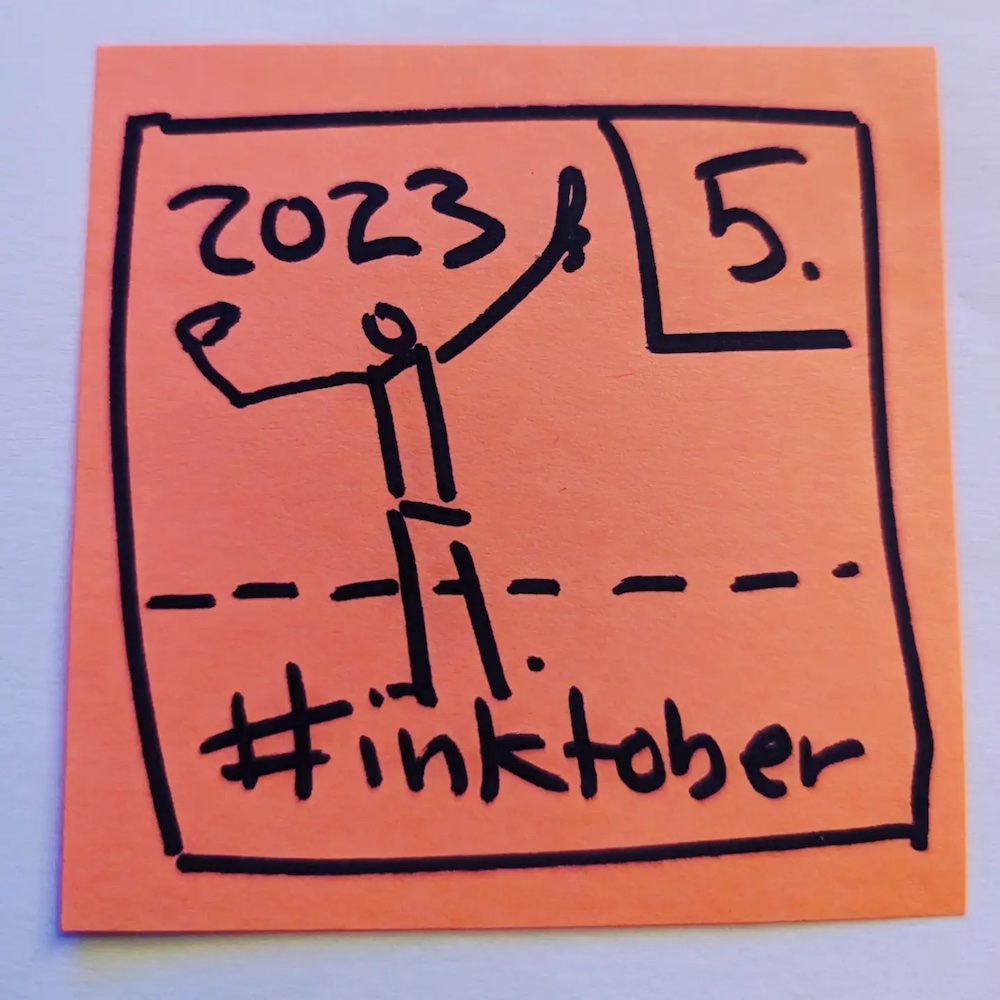 2023
5.
#inktober